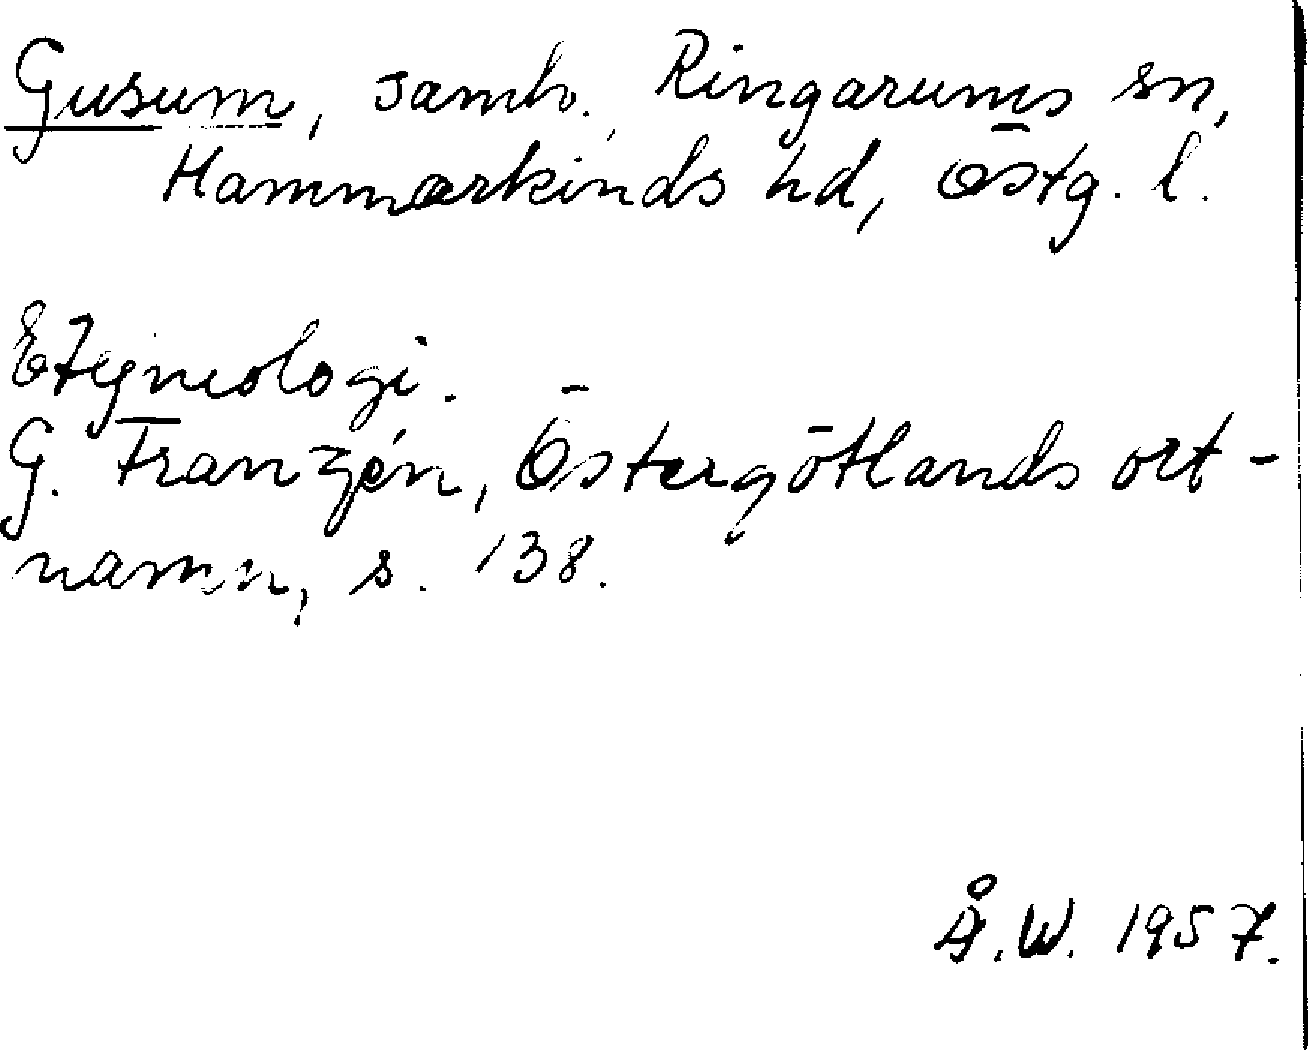 Gusum, samh. Ringarums sn,
Hammarkinds hd, Östg. l.
Etymologi.
G. Franzén, Östergötlands ort-
namn, s. 138.
Å.W. 1957.